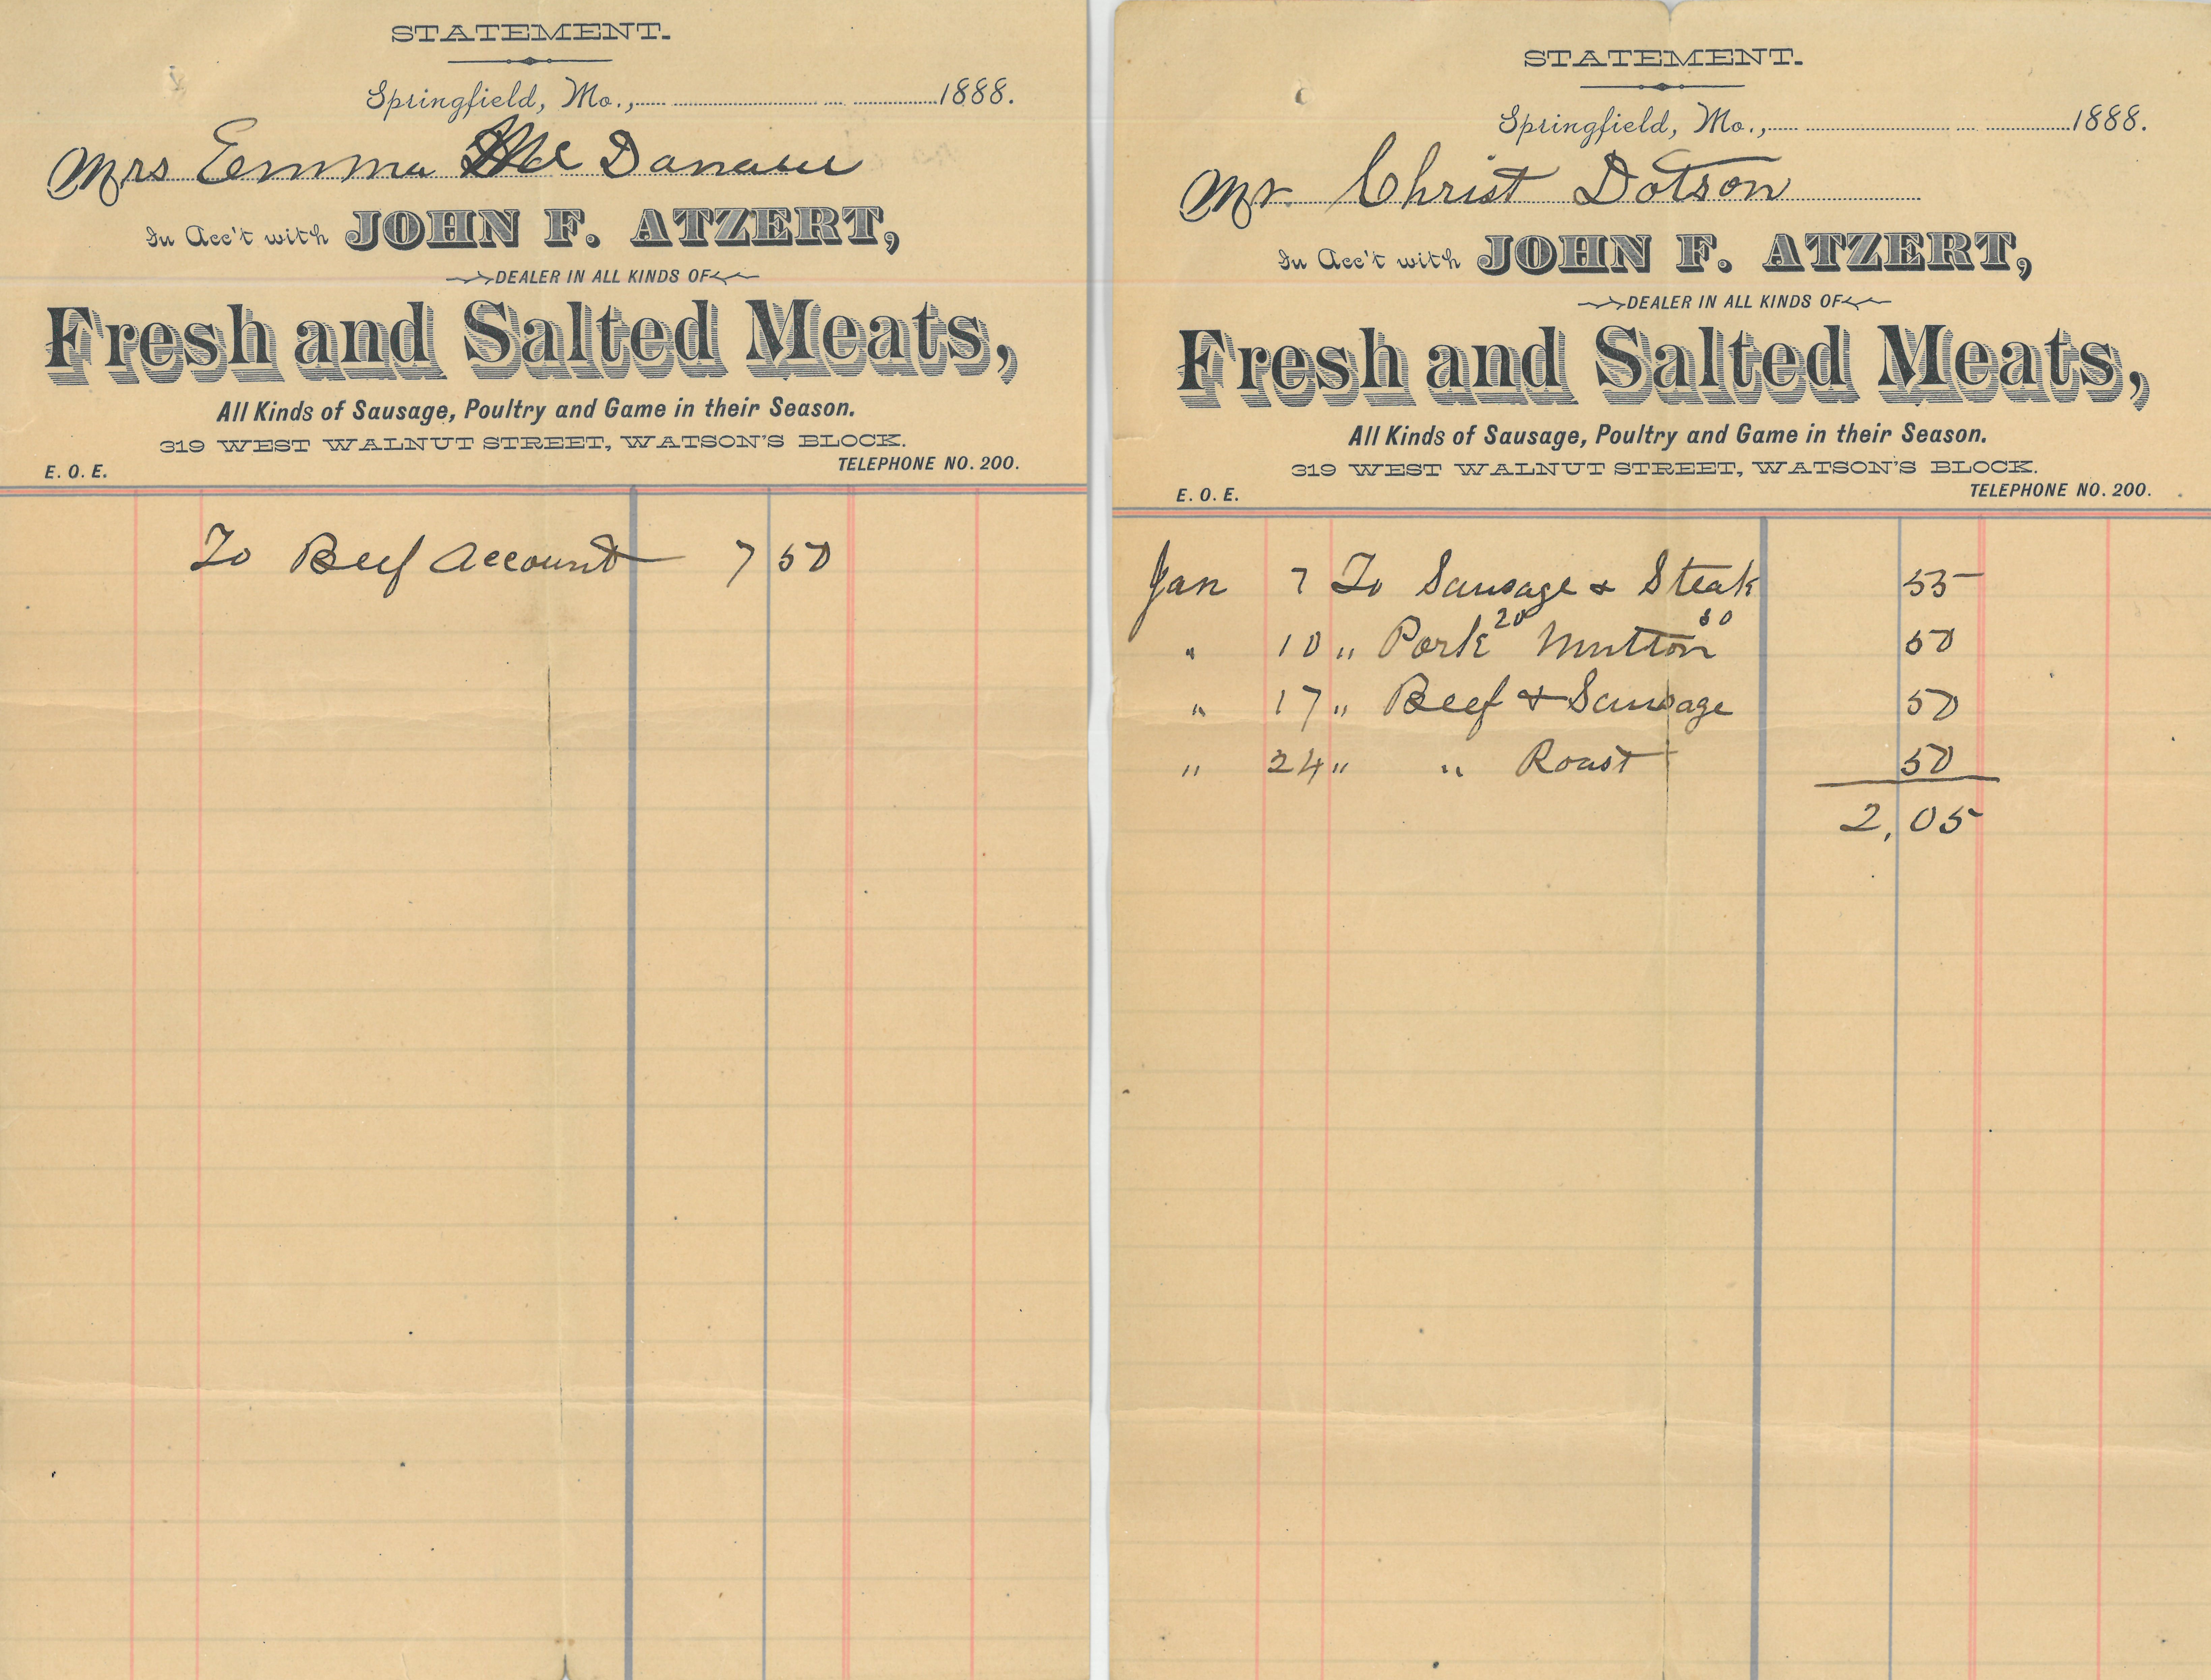 STATEMENT.
Springfield, Mo., 1888.
Mrs Emma Mc
In Acc't with JOHN F. ATZERT,
DEALER IN ALL KINDS OF
Fresh and Salted Meats,
All Kinds of Sausage, Poultry and Game in their Season.
319 WEST WALNUT STREET, WATSON'S BLOCK.
E. O. E. TELEPHONE NO. 200.
To Beef Account 7 50
STATEMENT.
Springfield, Mo., 1888.
Mr. Christ Dotson
In Acc't with JOHN F. ATZERT,
DEALER IN ALL KINDS OF
Fresh and Salted Meats,
All Kinds of Sausage, Poultry and Game in their Season.
319 WEST WALNUT STREET, WATSON'S BLOCK.
E. O. E. TELEPHONE NO. 200.
Jan 7 To Sausage & Steak 55
" 10 " Pork 20 Mutton 30 50
" 17 " Beef & Sausage 50
" 24 " " Roast 50
2,05